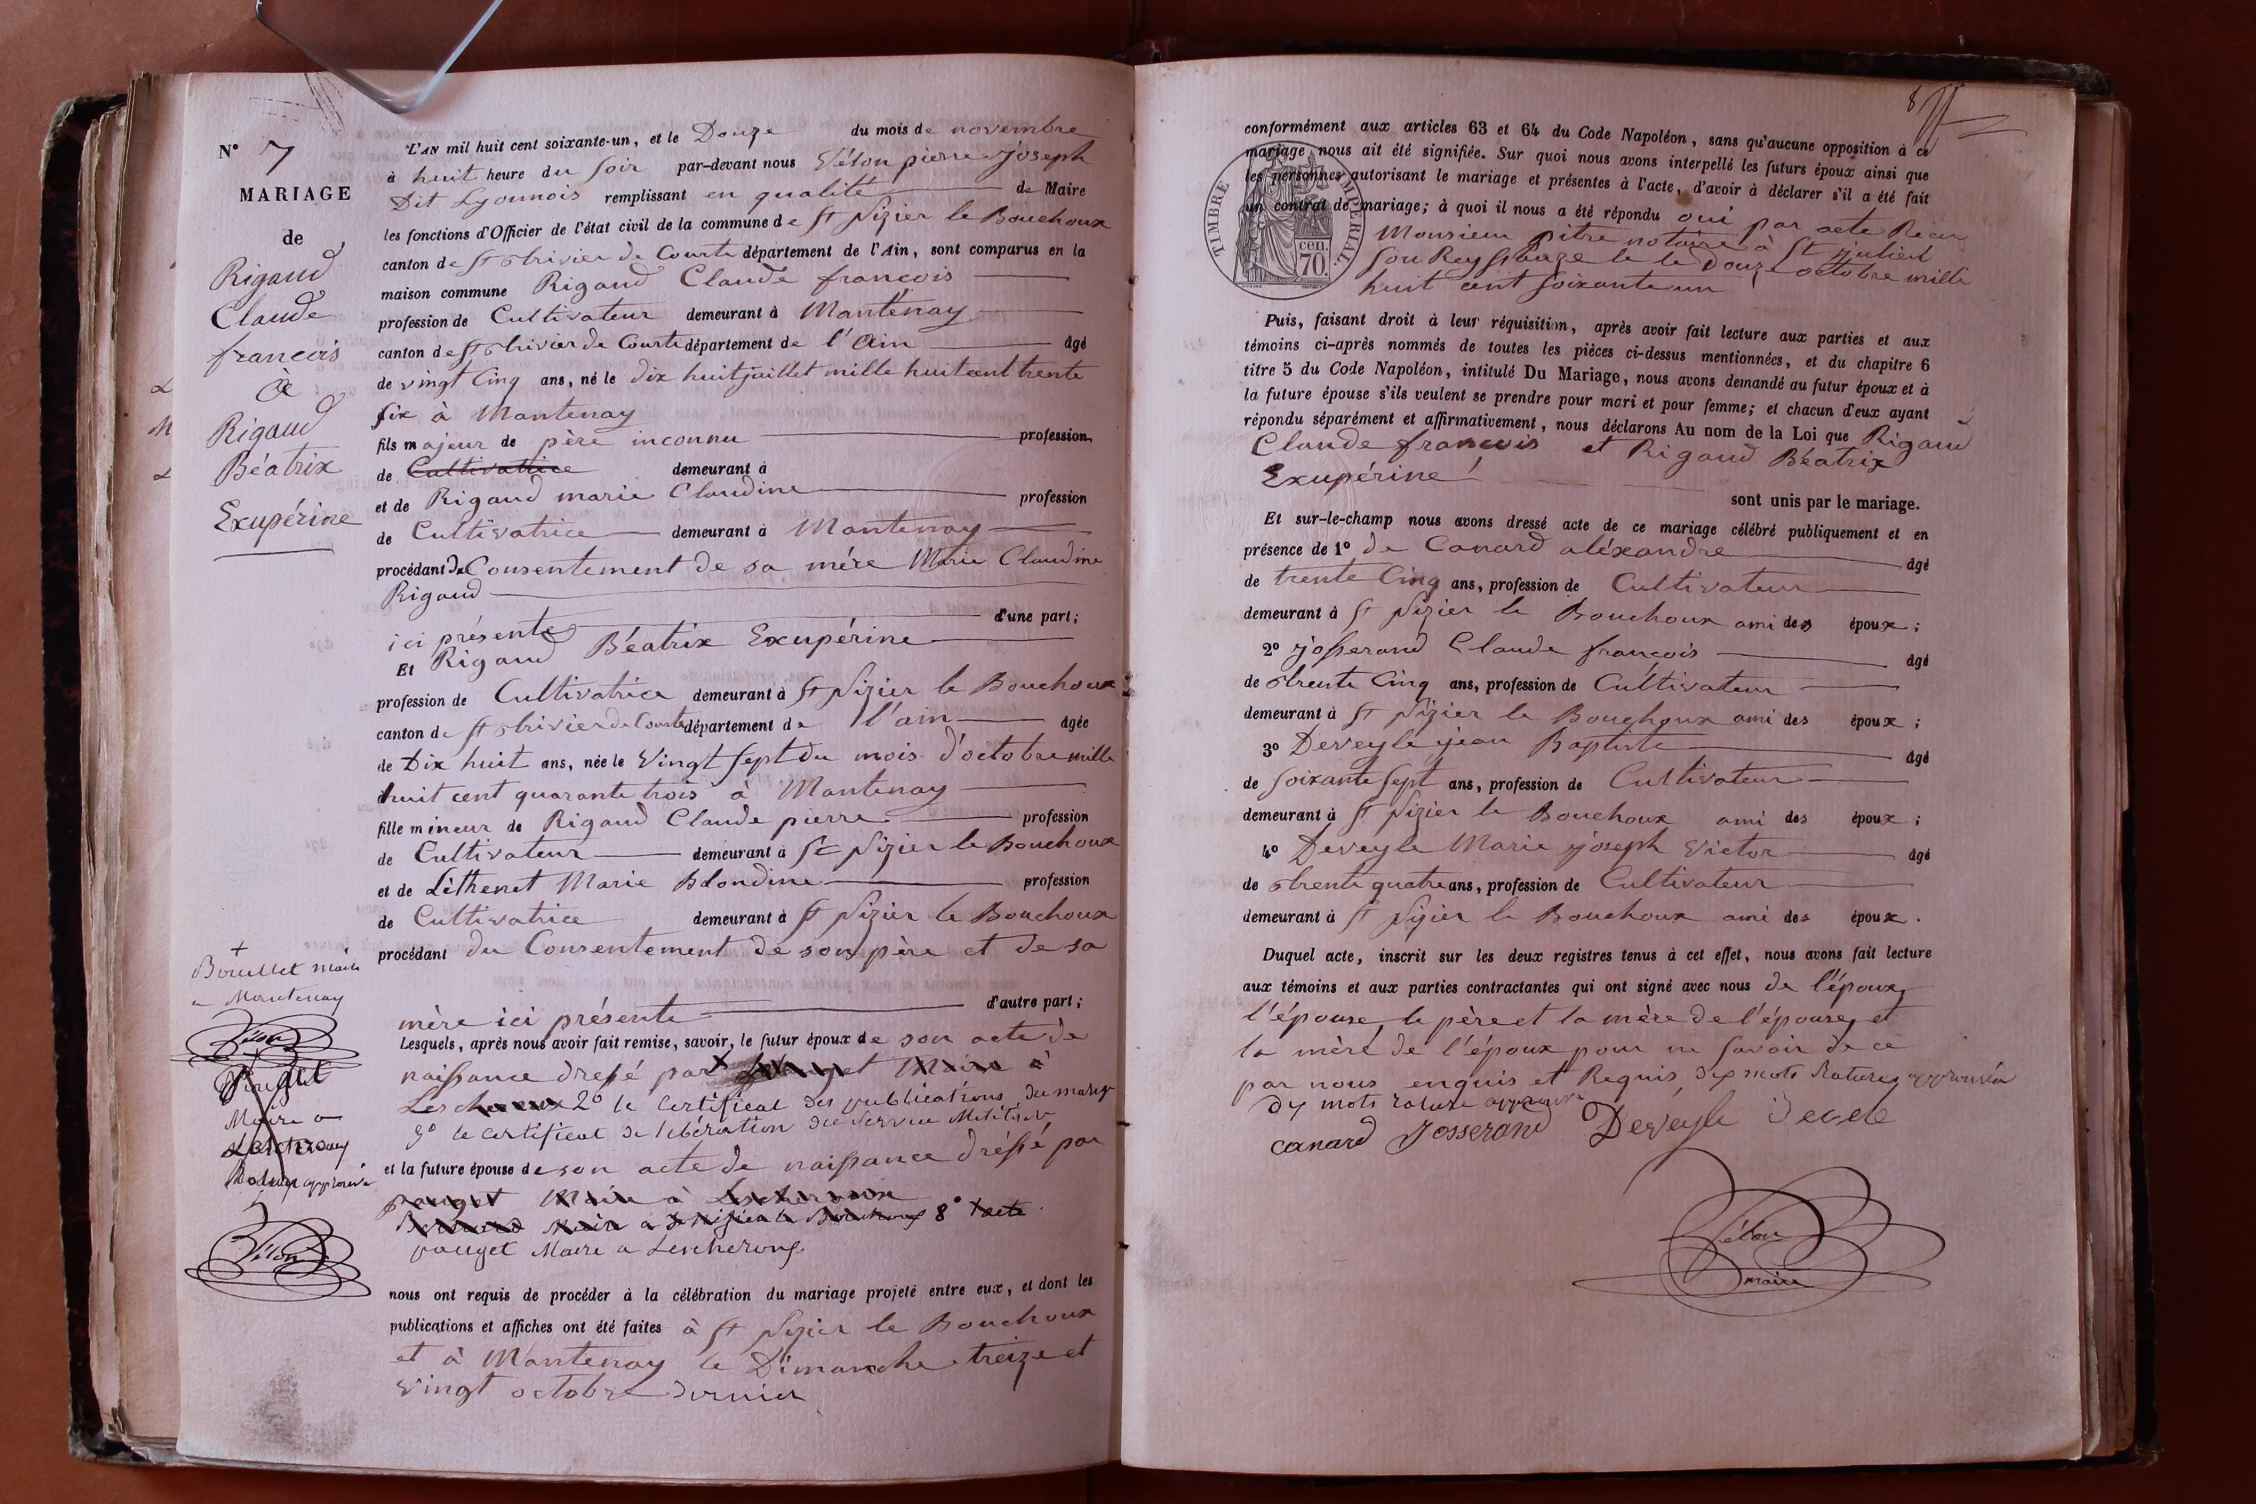 N° 7
MARIAGE
de
Rigaud
Claude
francois
à
Rigaud
Béatrix
Exupérine
L'AN mil huit cent soixante-un, et le Douze du mois de novembre
à huit heure du soir par-devant nous Félon pierre joseph
Dit Lyonnois remplissant en qualité de Maire
les fonctions d'Officier de l'état civil de la commune de St Nizier le Bouchoux
canton de St Trivier de Courte département de l'Ain, sont comparus en la
maison commune Rigaud Claude francois
profession de Cultivateur demeurant à Mantenay
canton de St Trivier de Courte département de l'ain âgé
de vingt Cinq ans, né le dix huit juillet mille huit cent trente
six à Mantenay
fils majeur de père inconnu profession
de Cultivatrice demeurant à
et de Rigaud marie Claudine profession
de Cultivatrice demeurant à Mantenay
procédant du Consentement de sa mère Marie Claudine
Rigaud
ici présente d'une part;
Et Rigaud Béatrix Exupérine
profession de Cultivatrice demeurant à St Nizier le Bouchoux
canton de St Trivier de Courte département de l'ain âgée
de Dix huit ans, née le Vingt sept du mois d'octobre mille
huit cent quarante trois à Mantenay
fille mineur de Rigaud Claude pierre profession
de Cultivateur demeurant à St Nizier le Bouchoux
et de Lèthenet Marie Blondine profession
de Cultivatrice demeurant à St Nizier le Bouchoux
procédant du Consentement de son père et de sa
mère ici présente d'autre part;
Lesquels, après nous avoir fait remise, savoir, le futur époux de son acte de
naissance dressé par + Maire à
2° le certificat des publications du mariage
3° le certificat de libération du service Militaire
et la future épouse de son acte de naissance dréssé par
pauget Maire à
Maire a St Nizier le Bouchoux 8° l'acte
pauget Maire a Lescheroux
nous ont requis de procéder à la célébration du mariage projeté entre eux, et dont les
publications et affiches ont été faites à St Nizier le Bouchoux
et à Mantenay le Dimanche treize et
vingt octobre dernier
+
Bouillet maire
a Mantenay
Félon
Pauget
Maire a
Lescheroux
approuvé
Félon
8
conformément aux articles 63 et 64 du Code Napoléon, sans qu'aucune opposition à ce
mariage nous ait été signifiée. Sur quoi nous avons interpellé les futurs époux ainsi que
les personnes autorisant le mariage et présentes à l'acte, d'avoir à déclarer s'il a été fait
un contrat de mariage; à quoi il nous a été répondu oui par acte Recu
Monsieur pitre notaire à St julien
sou Reyssouze le le Douze octobre mille
huit cent soixante un
TIMBRE IMPERIAL
70 cen.
Puis, faisant droit à leur réquisition, après avoir fait lecture aux parties et aux
témoins ci-après nommés de toutes les pièces ci-dessus mentionnées, et du chapitre 6
titre 5 du Code Napoléon, intitulé Du Mariage, nous avons demandé au futur époux et à
la future épouse s'ils veulent se prendre pour mari et pour femme; et chacun d'eux ayant
répondu séparément et affirmativement, nous déclarons Au nom de la Loi que Rigaud
Claude francois et Rigaud Béatrix
Exupérine
sont unis par le mariage.
Et sur-le-champ nous avons dressé acte de ce mariage célébré publiquement et en
présence de 1° de Canard aléxandre âgé
de trente Cinq ans, profession de Cultivateur
demeurant à St Nizier le Bouchoux ami des époux;
2° josserand Claude françois âgé
de trente Cinq ans, profession de Cultivateur
demeurant à St Nizier le Bouchoux ami des époux;
3° Deveyle jean Baptiste âgé
de soixante sept ans, profession de Cultivateur
demeurant à St Nizier le Bouchoux ami des époux;
4° Deveyle Marie joseph Victor âgé
de trente quatre ans, profession de Cultivateur
demeurant à St Nizier le Bouchoux ami des époux.
Duquel acte, inscrit sur les deux registres tenus à cet effet, nous avons fait lecture
aux témoins et aux parties contractantes qui ont signé avec nous de l'époux,
l'épouse, le père et la mère de l'épouse, et
la mère de l'époux pour ne savoir de ce
par nous enquis et Requis, dix mots Raturés approuvés
dix mots raturé approuvé
canard Josserand Deveyle
Félon
maire